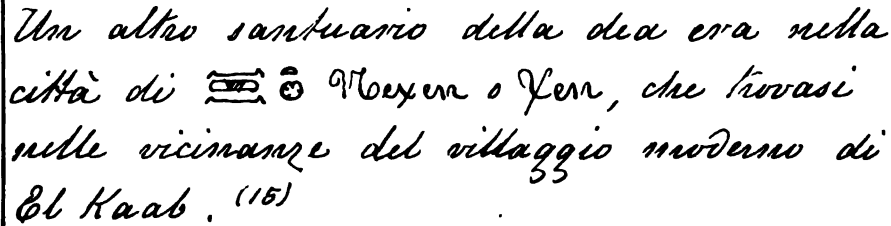 Un altro santuario della dea era nella
città di Mexen o Xen, che trovasi
nelle vicinanze del villaggio moderno di
El Kaab. (15)